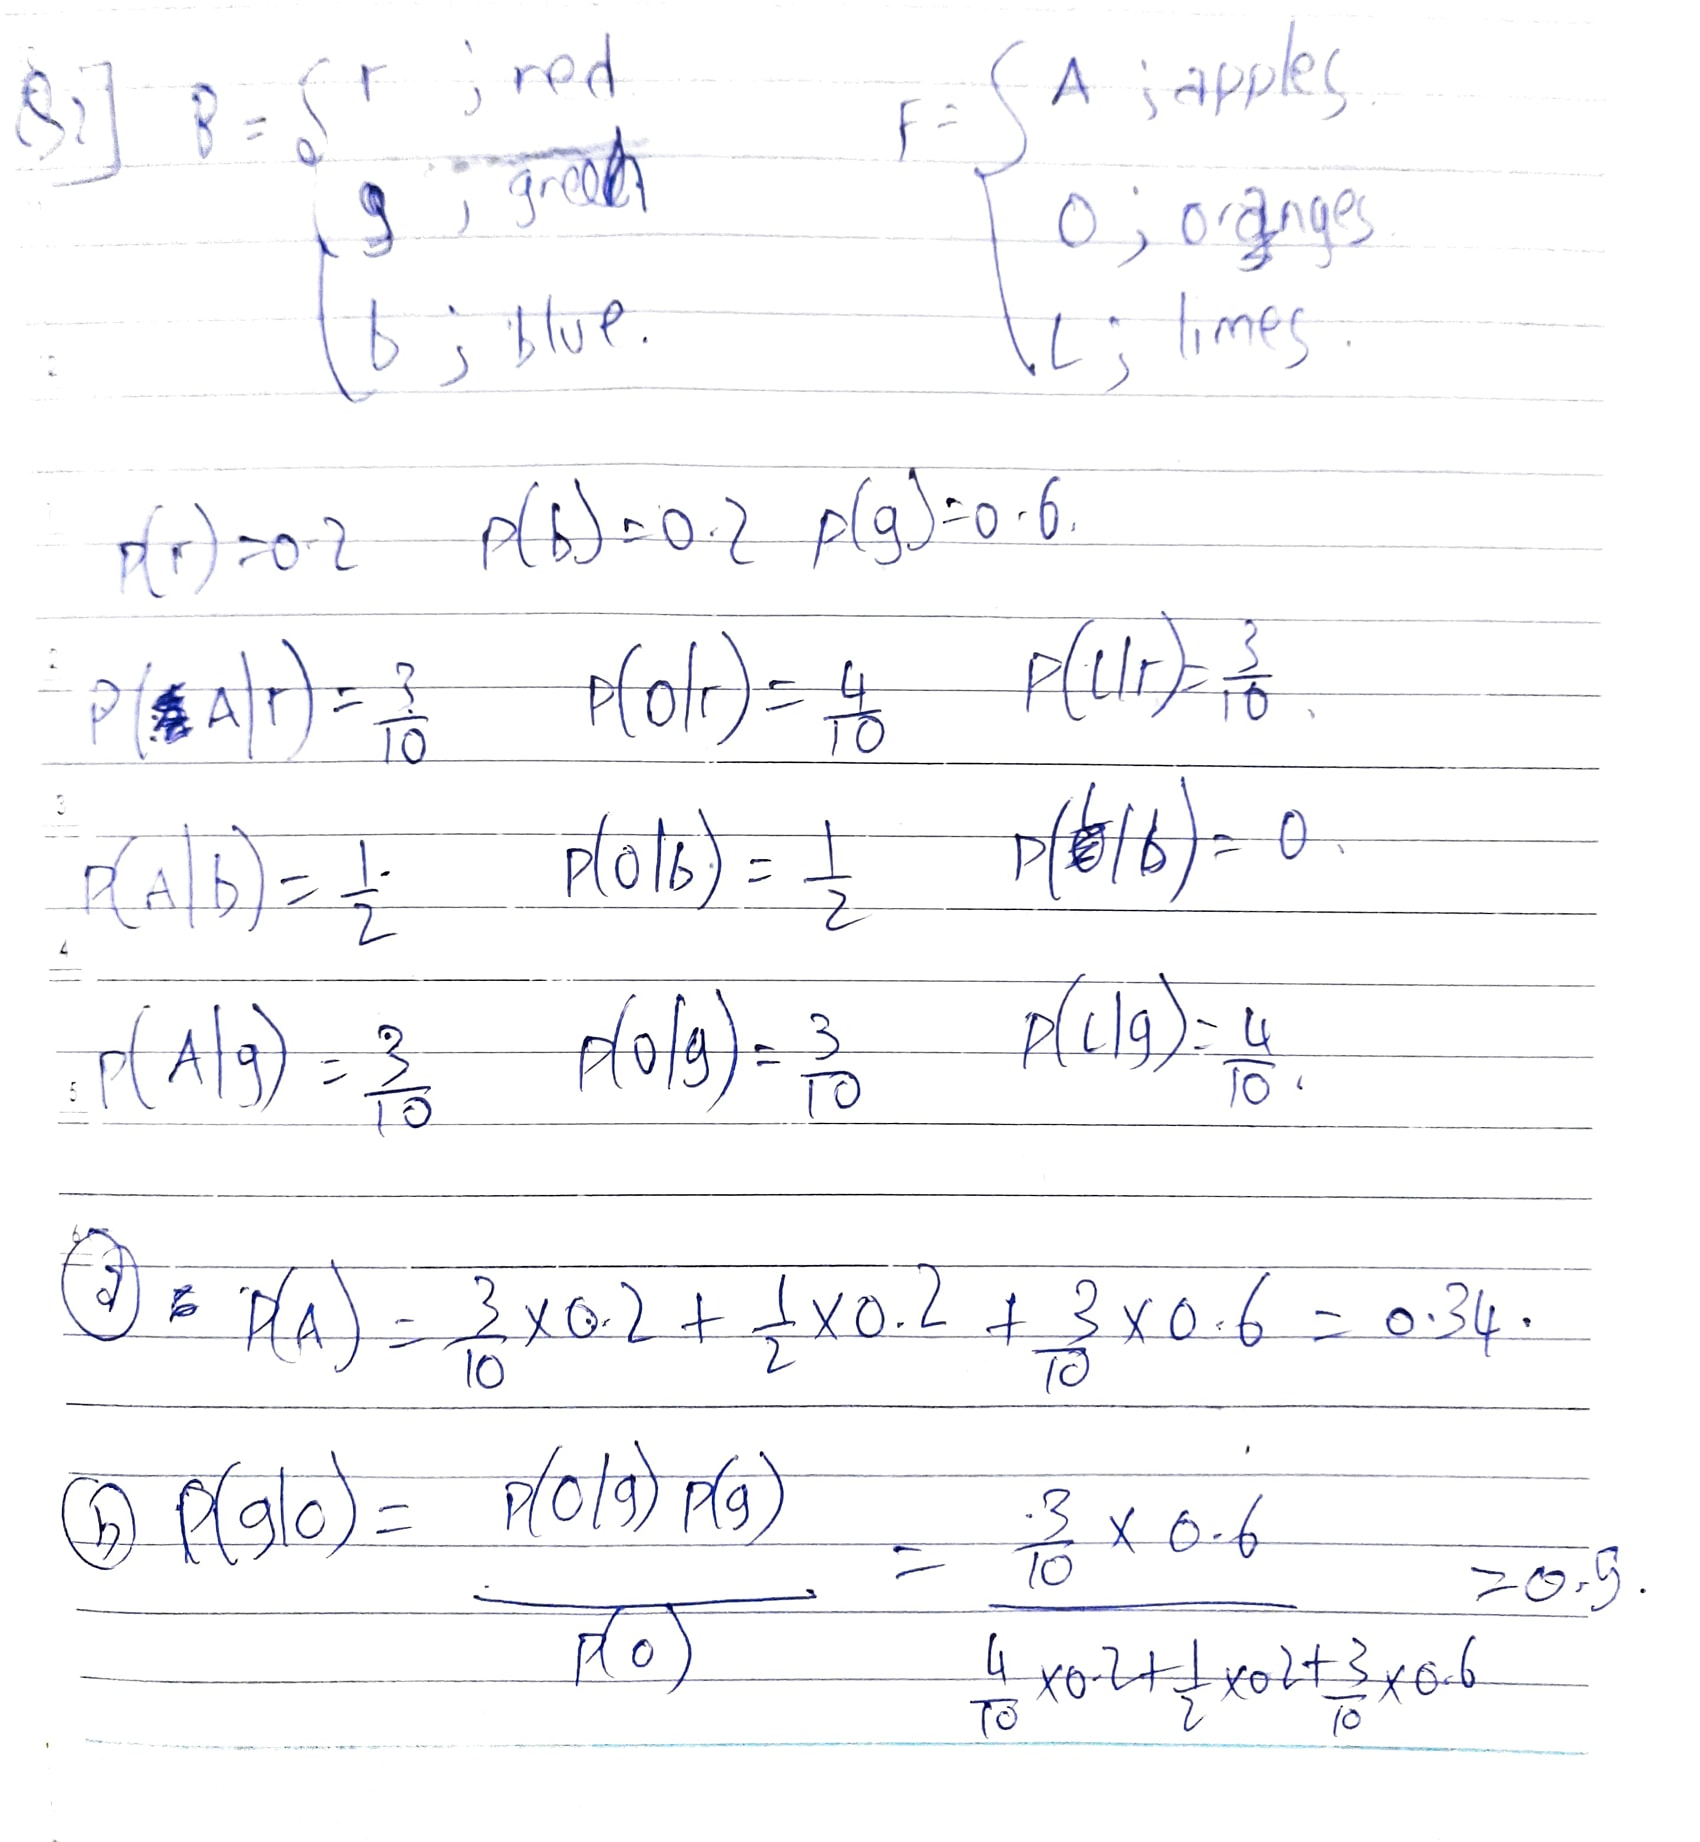 Q2] B = { r ; red F = { A ; apples.
g ; green O ; oranges.
b ; blue. L ; limes.
P(r) = 0.2 P(b) = 0.2 P(g) = 0.6.
P(A|r) = 3/10 P(O|r) = 4/10 P(L|r) = 3/10.
P(A|b) = 1/2 P(O|b) = 1/2 P(L|b) = 0.
P(A|g) = 3/10 P(O|g) = 3/10 P(L|g) = 4/10.
(a) P(A) = 3/10 × 0.2 + 1/2 × 0.2 + 3/10 × 0.6 = 0.34.
(b) P(g|O) = P(O|g) P(g) / P(O) = 3/10 × 0.6 / 4/10 × 0.2 + 1/2 × 0.2 + 3/10 × 0.6 = 0.5.